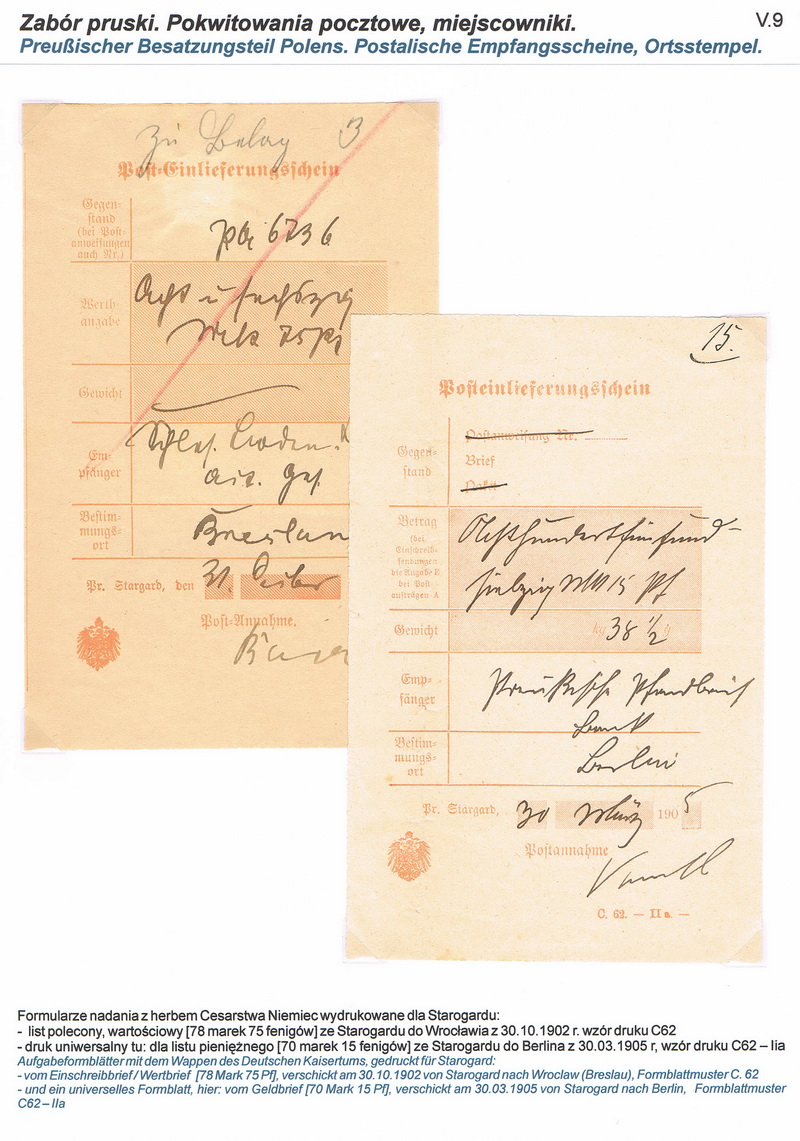 Zabór pruski. Pokwitowania pocztowe, miejscowniki.
V.9
Preußischer Besatzungsteil Polens. Postalische Empfangsscheine, Ortsstempel.
zu Belag 3
Post-Einlieferungsschein
Gegen-
stand
(bei Post-
anweisungen
auch Nr.)
6736
Werth-
angabe
Acht u sechszig
Mk 75 Pf
Gewicht
Em-
pfänger
Schles. Boden
Ges.
Bestim-
mungs-
ort
Breslau
Pr. Stargard, den 31.
Post-Annahme.
15.
Posteinlieferungsschein
Gegen-
stand
Postanweisung Nr.
Brief
Paket
Betrag
(bei
Einschreib-
sendungen
die Angabe E
bei Post-
aufträgen A
Achthundertfünfund-
siebzig Mk 15 Pf
Gewicht
kg 38 1/2 g
Emp-
fänger
Preußische Pfandbrief
Bank
Bestim-
mungs-
ort
Berlin
Pr. Stargard, 30 März 1905
Postannahme
C. 62. — II a. —
Formularze nadania z herbem Cesarstwa Niemiec wydrukowane dla Starogardu:
- list polecony, wartościowy [78 marek 75 fenigów] ze Starogardu do Wrocławia z 30.10.1902 r. wzór druku C62
- druk uniwersalny tu: dla listu pieniężnego [70 marek 15 fenigów] ze Starogardu do Berlina z 30.03.1905 r, wzór druku C62 – Iia
Aufgabeformblätter mit dem Wappen des Deutschen Kaisertums, gedruckt für Starogard:
- vom Einschreibbrief / Wertbrief [78 Mark 75 Pf], verschickt am 30.10.1902 von Starogard nach Wroclaw (Breslau), Formblattmuster C. 62
- und ein universelles Formblatt, hier: vom Geldbrief [70 Mark 15 Pf], verschickt am 30.03.1905 von Starogard nach Berlin, Formblattmuster
C62 – IIa